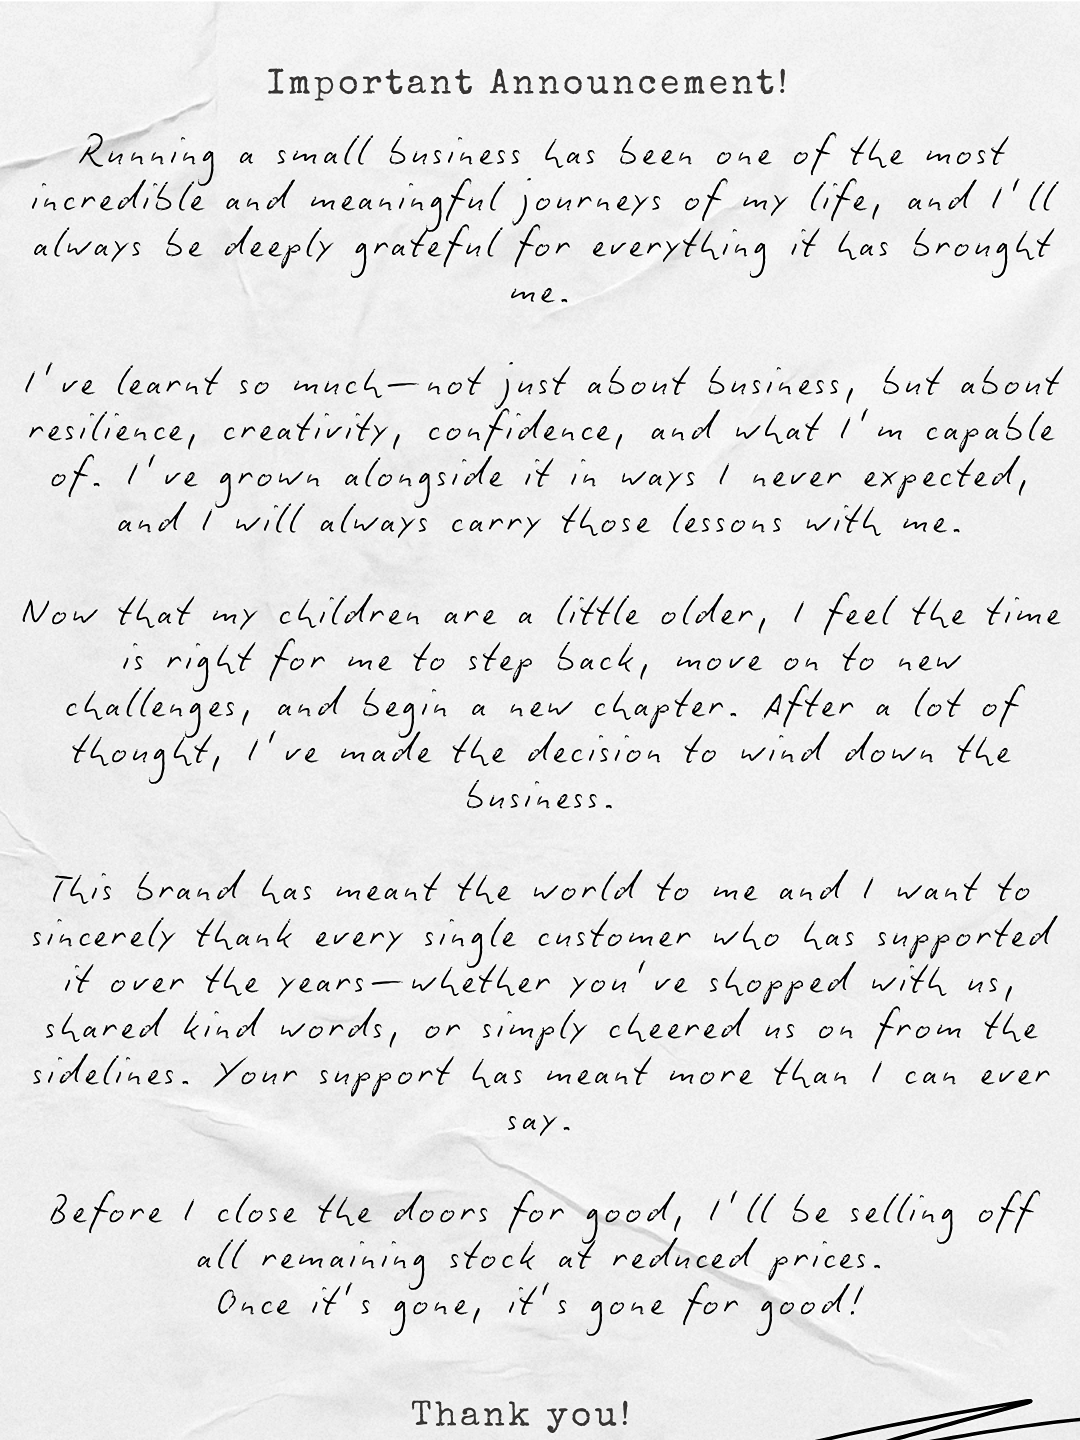 Important Announcement!
Running a small business has been one of the most
incredible and meaningful journeys of my life, and I'll
always be deeply grateful for everything it has brought
me.
I've learnt so much—not just about business, but about
resilience, creativity, confidence, and what I'm capable
of. I've grown alongside it in ways I never expected,
and I will always carry those lessons with me.
Now that my children are a little older, I feel the time
is right for me to step back, move on to new
challenges, and begin a new chapter. After a lot of
thought, I've made the decision to wind down the
business.
This brand has meant the world to me and I want to
sincerely thank every single customer who has supported
it over the years—whether you've shopped with us,
shared kind words, or simply cheered us on from the
sidelines. Your support has meant more than I can ever
say.
Before I close the doors for good, I'll be selling off
all remaining stock at reduced prices.
Once it's gone, it's gone for good!
Thank you!